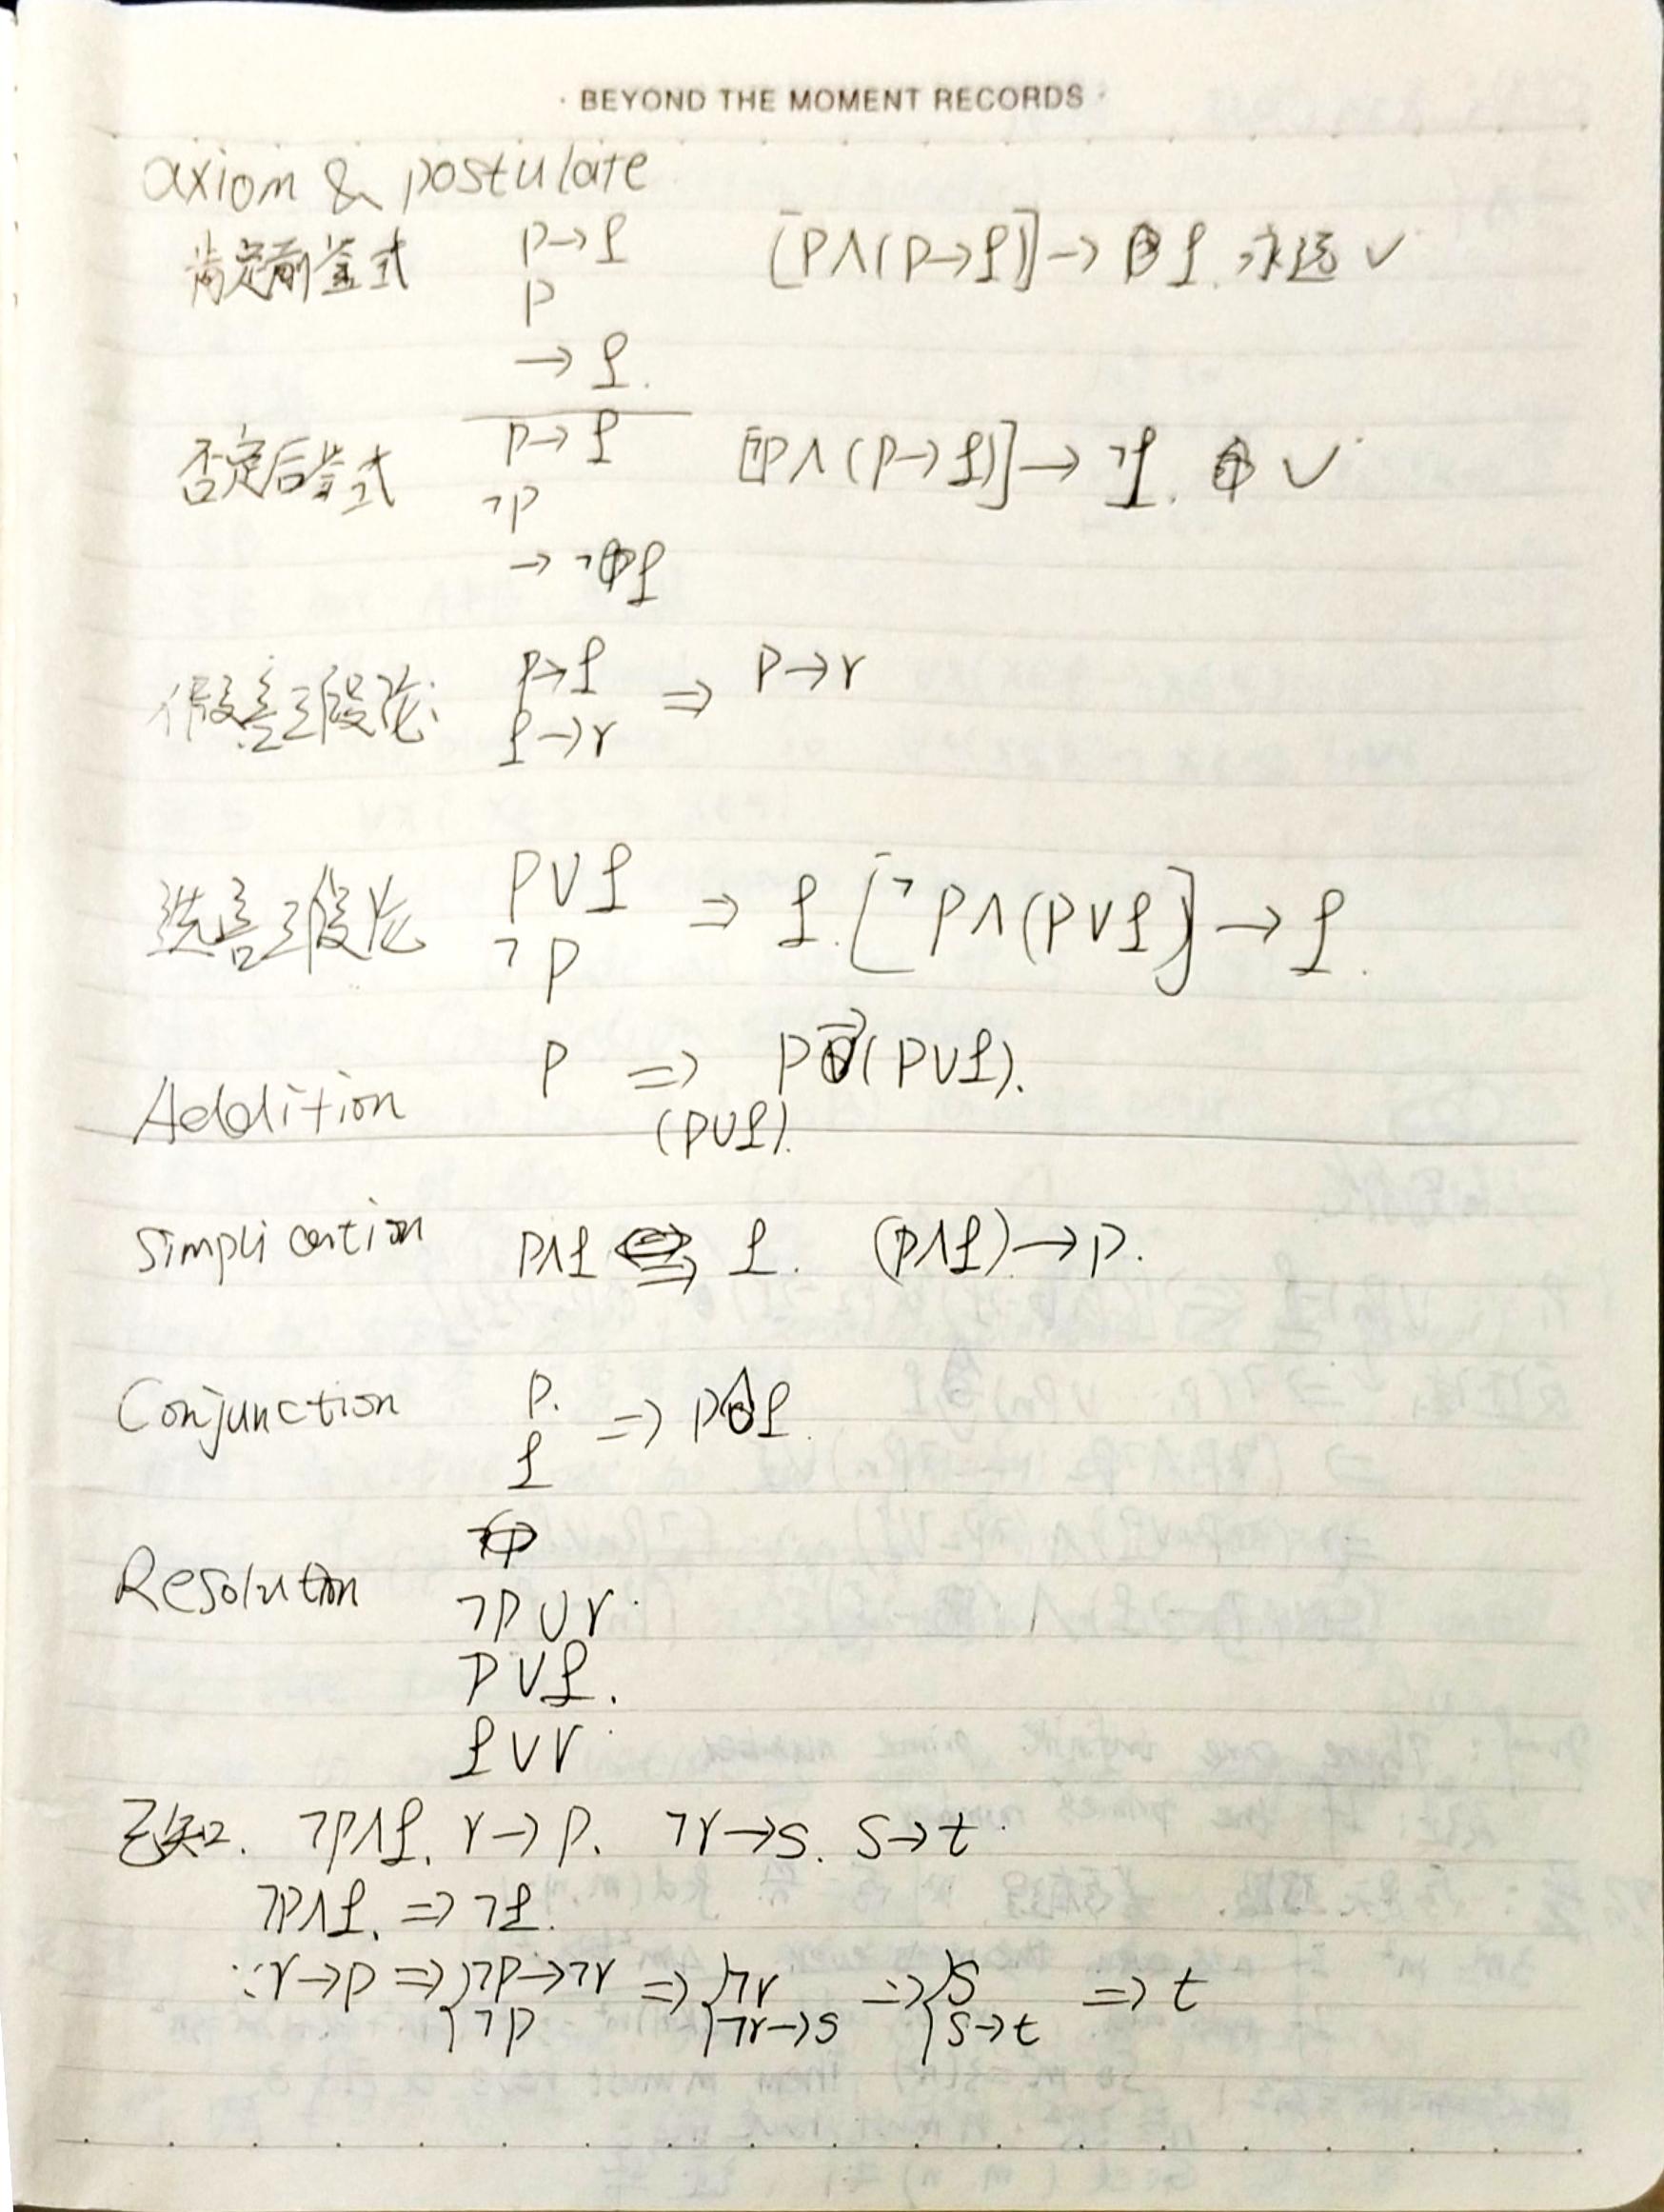 · BEYOND THE MOMENT RECORDS ·
axiom & postulate
肯定前言式 p→q [p∧(p→q)]→q. 永远 ✓
p
→ q.
否定后言式 p→q [¬p∧(p→q)]→¬q. ✓
¬p
→ ¬q
假言三段论: p→q ⇒ p→r
q→r
选言三段论 p∨q ⇒ q. [¬p∧(p∨q)]→q.
¬p
Addition p ⇒ p→(p∨q).
(p∨q).
Simplication p∧q ⇒ q. (p∧q)→p.
Conjunction p. ⇒ p∧q.
q
Resolution
¬p∨r.
p∨q.
q∨r.
已知. ¬p∧q. r→p. ¬r→s. s→t.
¬p∧q. ⇒ ¬q.
∵r→p ⇒ {¬p→¬r ⇒ {¬r ⇒ {s ⇒ t
¬p ¬r→s s→t